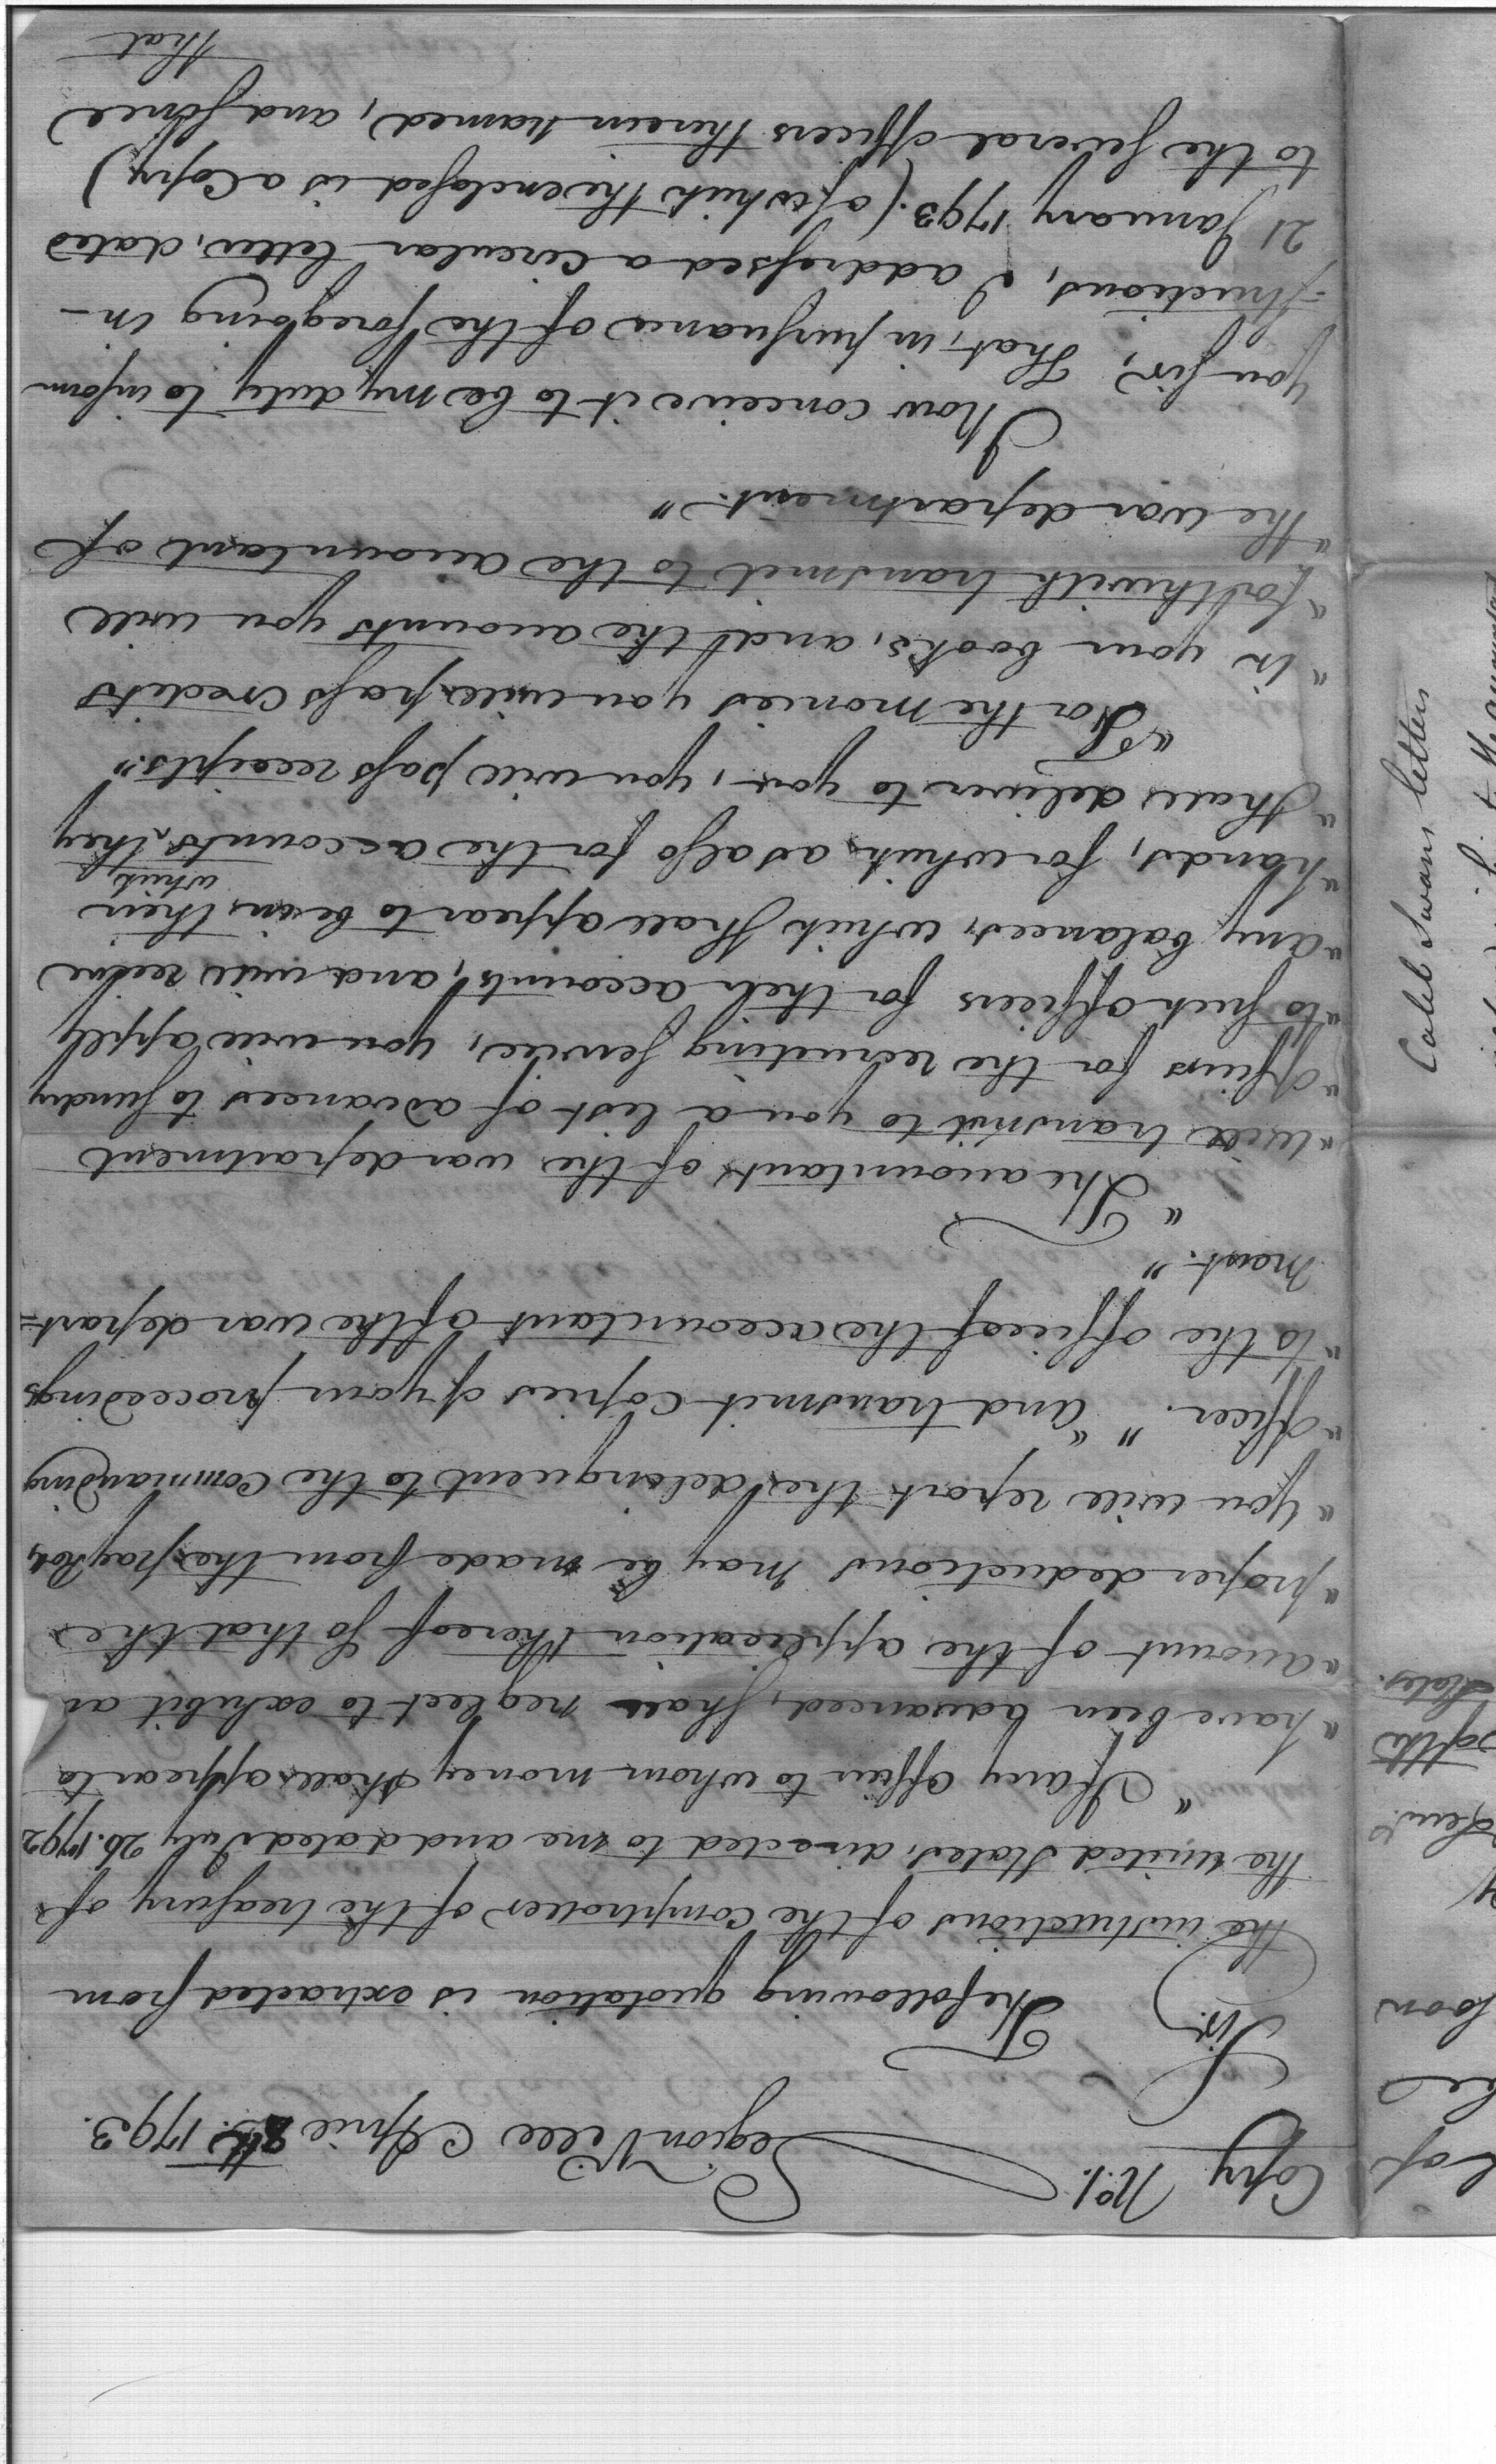 Copy No. 1.
Legion Ville April 8th. 1793.
Sir.
The following quotation is extracted from
the instructions of the Comptroller of the treasury of
the united States, directed to me and dated July 26. 1792
" If any officer to whom money shall appear to
" have been advanced, shall neglect to exhibit an
" account of the application thereof so that the
" proper deductions may be made from the pay Roll,
" you will report the delinquent to the Commanding
" officer. " " And transmit Copies of your proceedings
" to the office of the accountant of the war depart=
ment. "
" The accountant of the war department
" will transmit to you a list of advances to sundry
" officers for the recruiting service, you will apply
" to such officers for their accounts, and will receive
" any balances, which shall appear to be in their
" hands, for which, as also for the accounts, which they
" shall deliver to you, you will pass receipts."
" For the monies you will pass Credits
" in your books, and the accounts you will
" forthwith transmit to the accountant of
" the war department. "
I now conceive it to be my duty to inform
you sir, That, in pursuance of the foregoing in-
-structions, I addressed a circular letter, dated
21 January 1793. (of which the enclosed is a Copy)
to the several officers therein named, and since
that
Caleb Swan letters